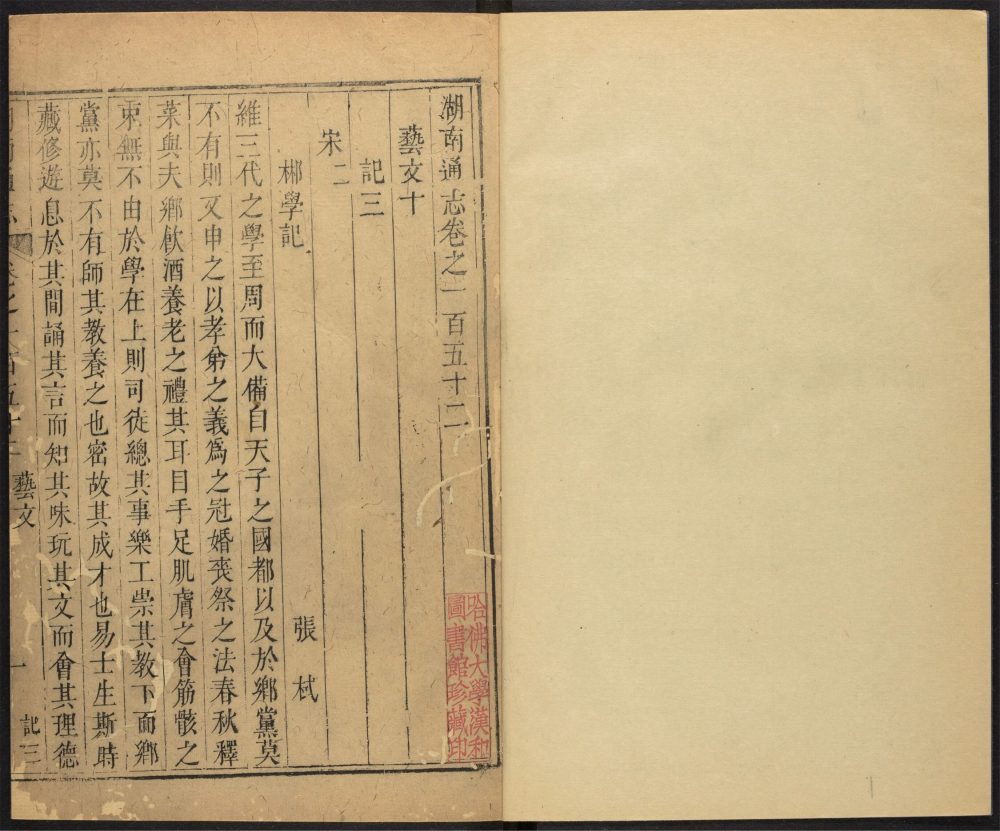 湖南通志卷之一百五十二
藝文十
記三
宋二
郴學記
張栻
維三代之學至周而大備自天子之國都以及於鄉黨莫
不有則又申之以孝弟之義爲之冠婚喪祭之法春秋釋
菜與夫鄉飲酒養老之禮其耳目手足肌膚之會筋骸之
束無不由於學在上則司徒總其事樂工崇其教下而鄉
黨亦莫不有師其教養之也密故其成才也易士生斯時
藏修遊息於其間誦其言而知其味玩其文而會其理德
湖南通志
卷之一百五十二
藝文
一
記三
哈佛大學漢和
圖書館珍藏印